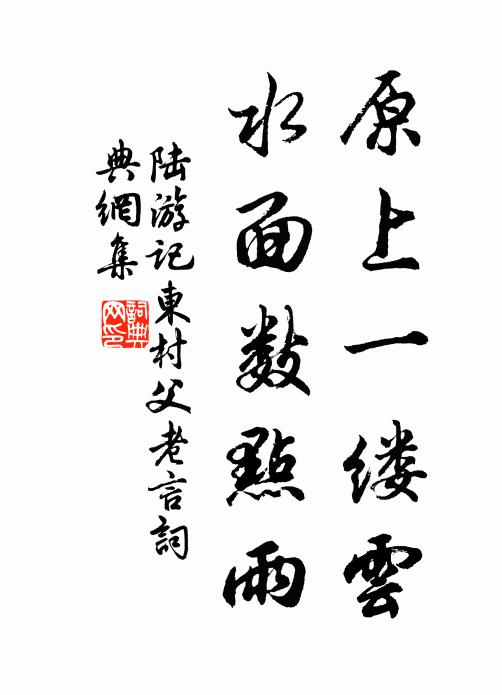 原上一缕雲
水面数點雨
陆游記東村父老言詞
典網集
詞典
网印